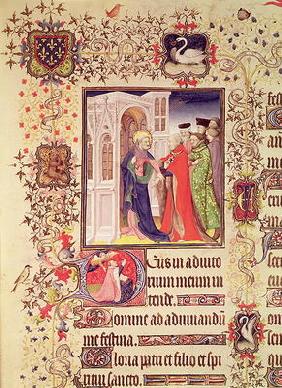 Deus in adiuto
rium meum in
tende.
Domine ad adiuuandū
me festina.
Gloria patri et filio et spi
ritui sancto.